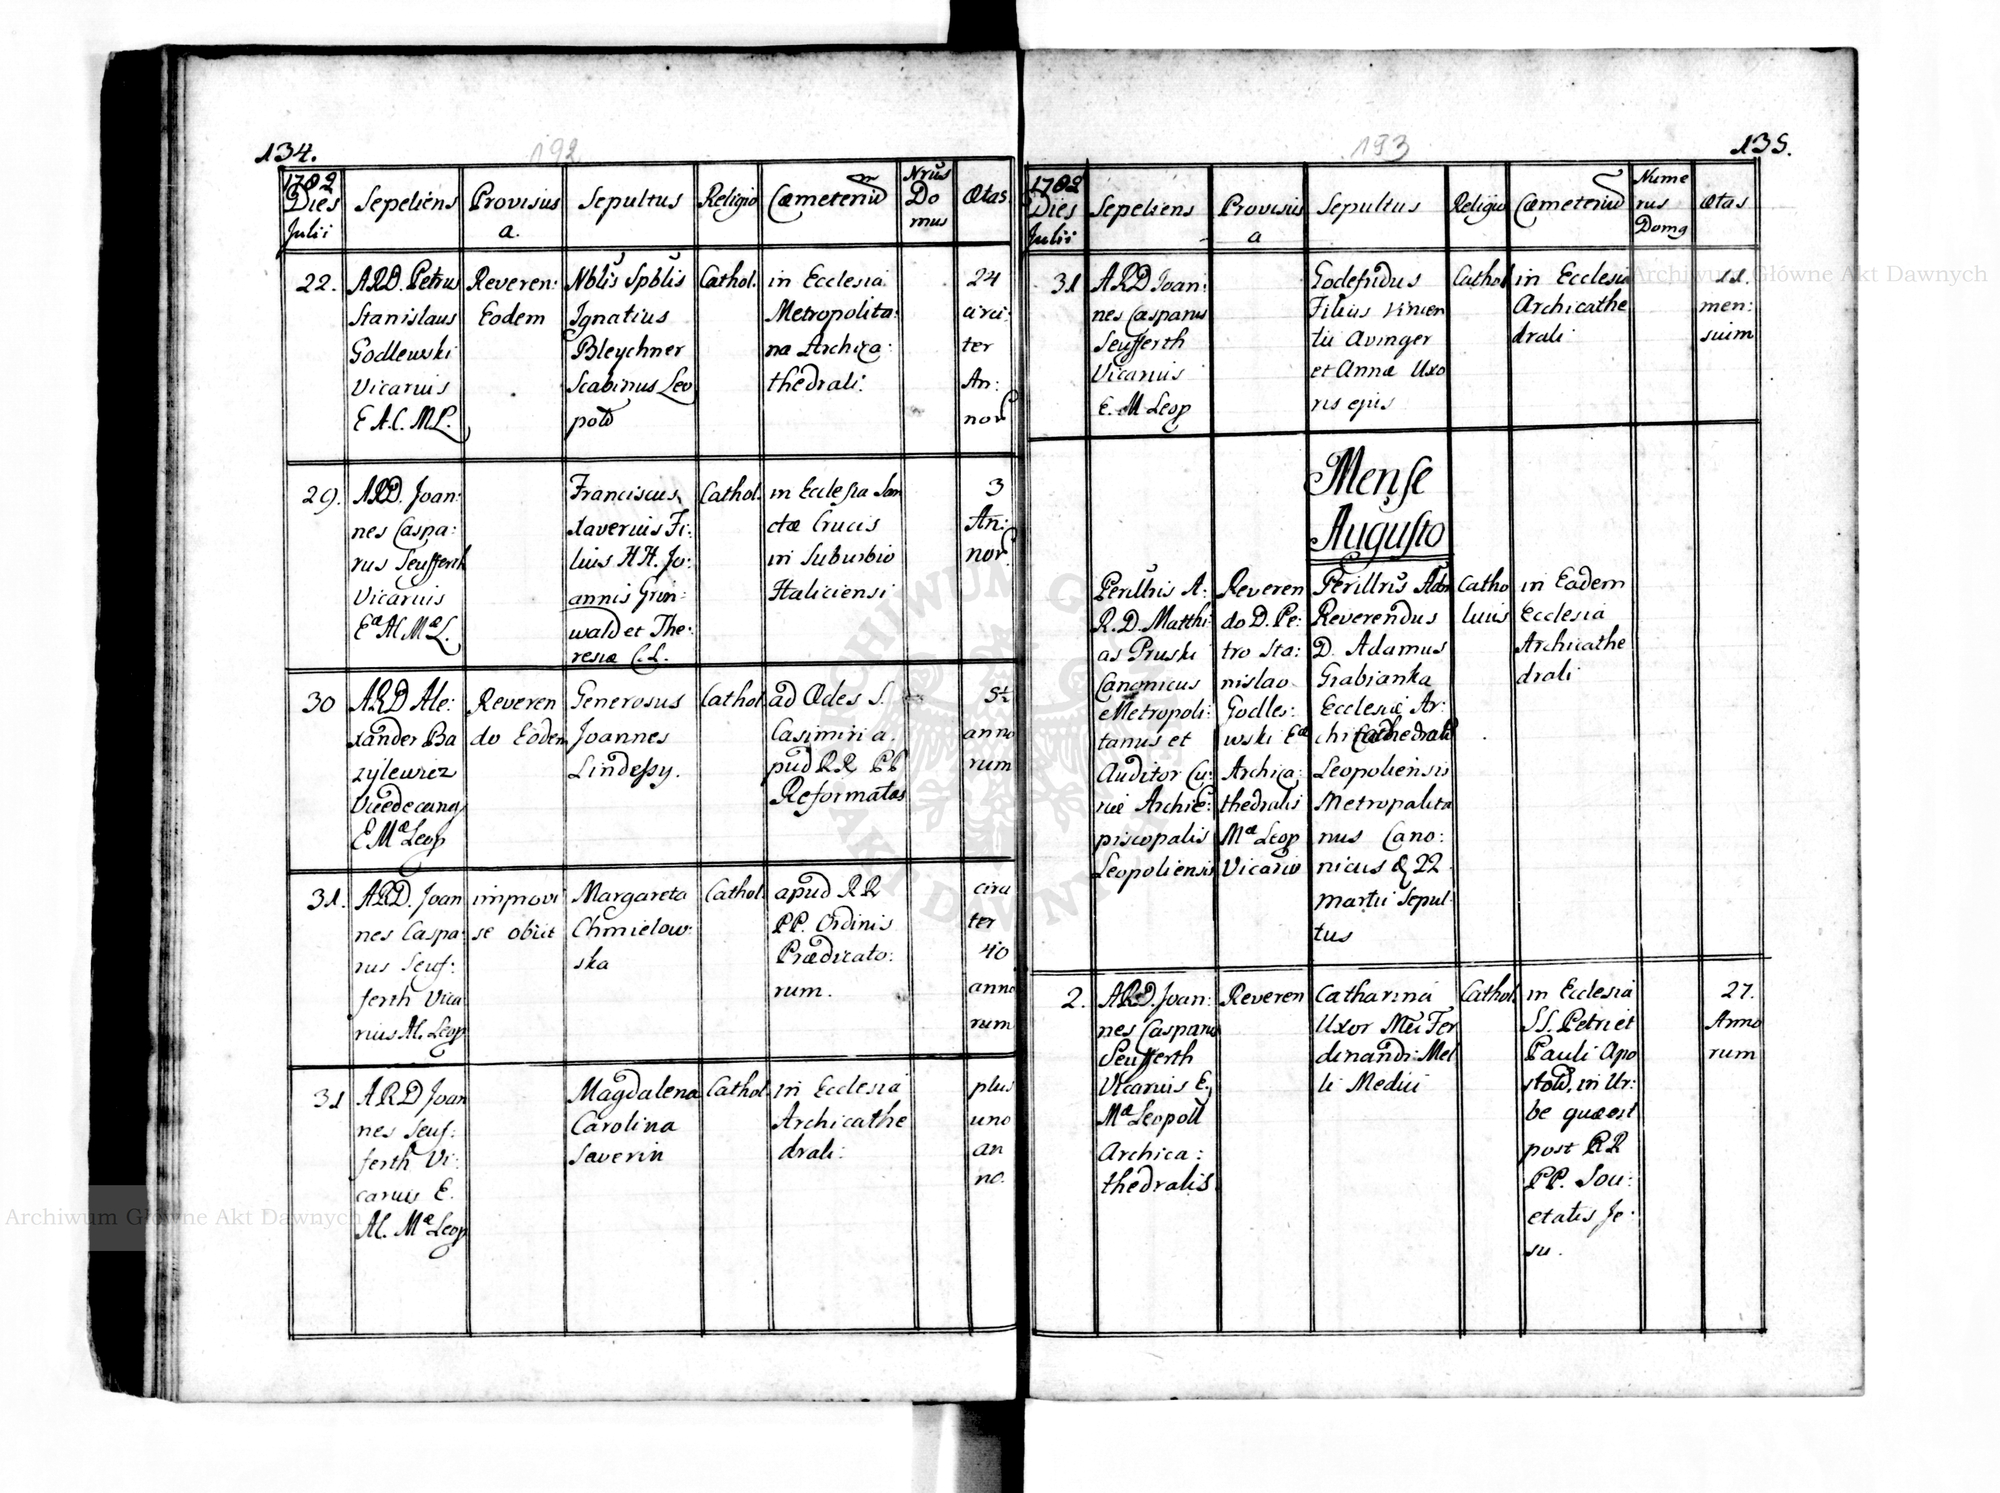 134.
192
1782
Dies
Julii
Sepeliens
Provisus
a.
Sepultus
Religio
Cœmeteriũ
Nrŭs
Do
mus
Ætas.
22.
ARD. Petrus
Stanislaus
Godlewski
Vicarius
E A.C. M.L.
Reveren:
Eodem
Nblis Spblis
Ignatius
Bleychner
Scabinus Leo
pold
Cathol.
in Ecclesia
Metropolita:
na Archica:
thedrali.
24
circi:
ter
An:
nor
29.
ARD. Joan:
nes Caspa:
rus Seufferth
Vicarius
Eæ Al Mæ L.
Franciscus
Xaverius Fi:
lius HH. Jo:
annis Grün:
wald et The:
resiæ C.L.
Cathol.
in Ecclesia San
ctæ Crucis
in Suburbio
Haliciensi
3
An:
nor
30
ARD Ale:
xander Ba
zylewicz
Vicedecang
E Mæ Leop
Reveren
do Eodem
Generosus
Joannes
Lindessy.
Cathol
ad Ædes S.
Casimiri a
pud RR PP
Reformatos
52
anno
rum
31.
ARD. Joan
nes Caspa:
rus Seuf:
ferth Vica
rius Al. Leop
improvi
se obiit
Margareta
Chmielow:
ska
Cathol.
apud RR
PP. Ordinis
Prædicato:
rum.
circi
ter
40
anno
rum
31
ARD Joan
nes Seuf:
ferth Vi:
carius E.
Al. Mæ Leop
Magdalena
Carolina
Severin
Cathol.
in Ecclesia
Archicathe
drali:
plus
uno
an
no.
193
135.
1782
Dies
Julii
Sepeliens
Provisus
a
Sepultus
Religio
Cœmeteriũ
Nume
rus
Domg
Ætas
31
ARD Joan:
nes Casparus
Seufferth
Vicarius
E. M Leop
Godefridus
Filius Vincen
tii Avinger
et Annæ Uxo
ris ejus
Cathol
in Ecclesia
Archicathe
drali
11.
men:
sium
Mense
Augusto
Perillris A:
R. D. Matthi:
as Pruski
Canonicus
Metropoli:
tanus et
Auditor Cu:
riæ Archie:
piscopalis
Leopoliensis
Reveren
do D. Pe:
tro Sta:
nislao
Godle:
wski Eæ
Archica:
thedralis
Mæ Leop
Vicario
Perillris Adm
Reverendus
D. Adamus
Grabianka
Ecclesiæ Ar:
chicathedralis
Leopoliensis
Metropolita
nus Cano:
nicus 22
martii Sepul:
tus
Catho
licus
in Eadem
Ecclesia
Archicathe
drali
2.
ARD. Joan:
nes Casparus
Seufferth
Vicarius E.
Mæ Leopoli
Archica:
thedralis
Reveren
Catharina
Uxor Mci Fer
dinandi Mel
li Medici
Cathol.
in Ecclesia
SS. Petri et
Pauli Apo
stolo, in Ur:
be quæ est
post RR
PP. Soci:
etatis Je:
su.
27.
Anno
rum
Archiwum Główne Akt Dawnych
Archiwum Główne Akt Dawnych